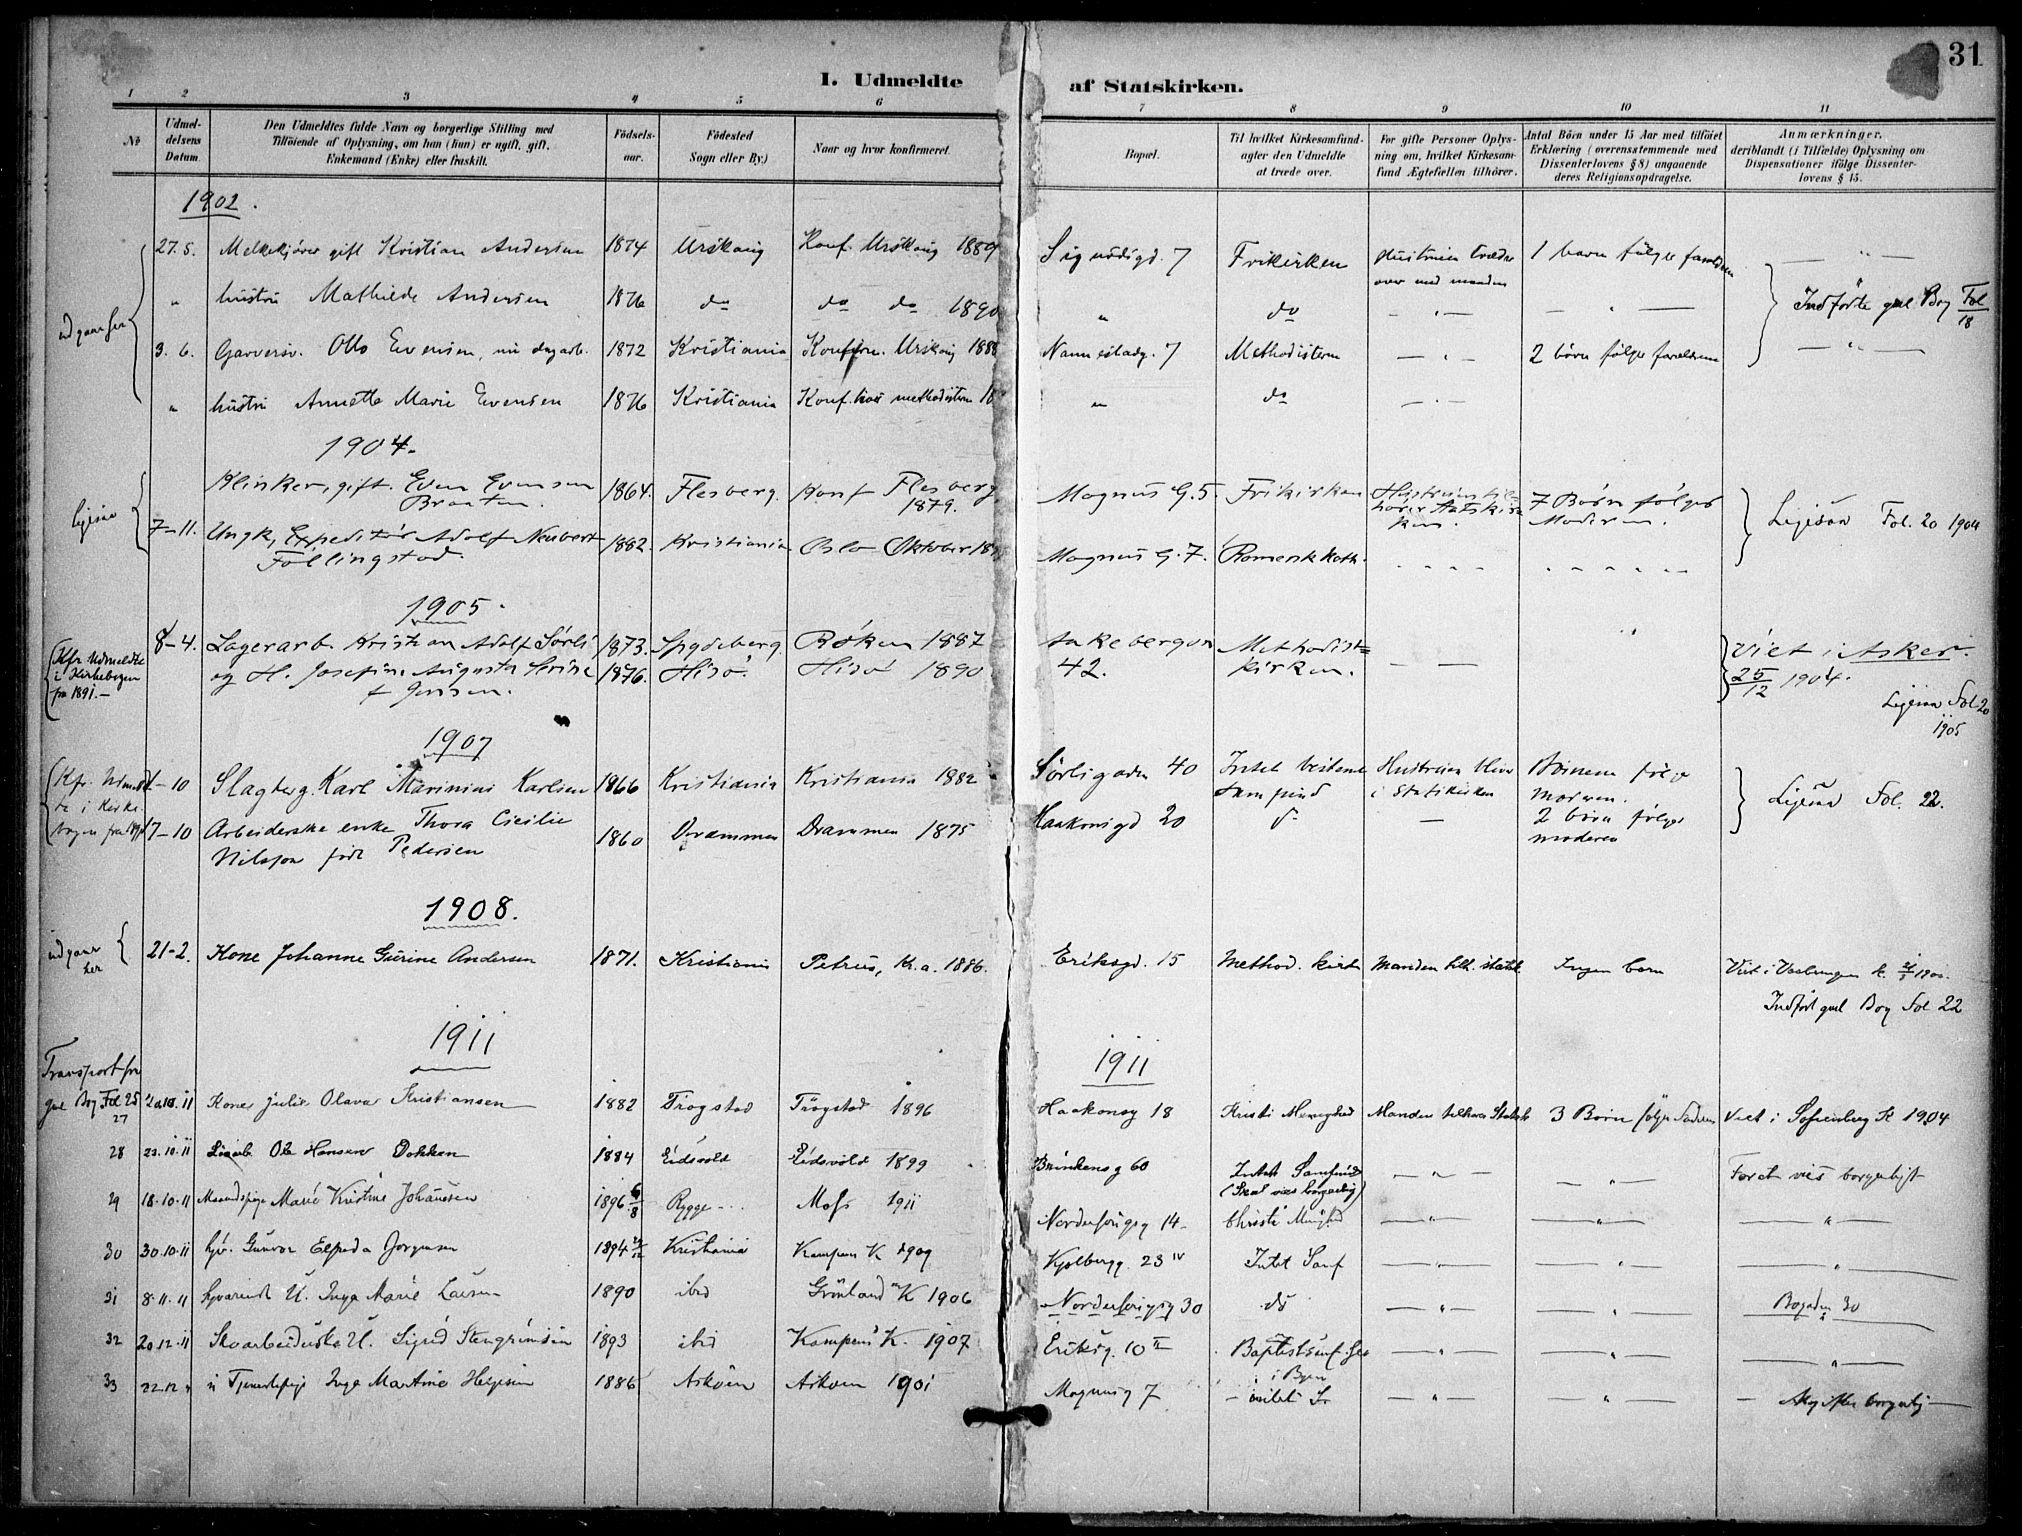 31
I. Udmeldte af Statskirken.
1 2 3 4 5 6 7 8 9 10 11
No
Udmel-
delsens
Datum.
Den Udmeldtes fulde Navn og borgerlige Stilling med
Tilföiende af Oplysning, om han (hun) er ugift, gift,
Enkemand (Enke) eller fraskilt.
Födsels-
aar.
Födested
Sogn eller By.)
Naar og hvor konfirmeret.
Bopæl.
Til hvilket Kirkesamfund-
agter den Udmeldte
at træde over.
For gifte Personer Oplys-
ning om, hvilket Kirkesam-
fund Ægtefællen tilhörer.
Antal Börn under 15 Aar med tilföiet
Erklæring (overensstemmende med
Dissenterlovens § 8) angaaende
deres Religionsopdragelse.
Anmærkninger,
deriblandt (i Tilfælde) Oplysning om
Dispensationer ifölge Dissenter-
lovens § 15.
1902.
27.5. Melkekjører gift Kristian Andersen 1874 Urskoug Konf. Urskoug 1889 7 Frikirken Hustruen træder over med manden 1 barn følger forældrene
" hustru Mathilde Andersen 1876 do do do 1890 " do — " — — " —
Indførte gml Bog Fol 18
udgaar her
3. 6. Garversv. Otto Evensen, nu dagarb. 1872 Kristiania Urskoug 1888 Nannestadg. 7 Methodisterne — " — 2 børn følger forældrene — " —
" hustru Annette Marie Evensen 1876 Kristiania Konf. hos methodisterne 18 " do — " —
1904.
Ligesaa
Klinker, gift. Even Evensen
Braaten. 1864. Flesberg. Konf Flesberg
1879. Magnus G. 5. Frikirken Hustruen til-
hører Statskir-
ken. 7 Børn følger
Moderen.
7–11. Ungk, Expeditør Adolf Neubert
Föllingstad. 1882. Kristiania Oslo Oktober 18 Magnus G. 7. Romersk Kath.
Ligesaa Fol. 20 1904
1905.
Kfr. Udmeldte
i Kirkebogen
fra 1891.—
8–4. Lagerarb. Kristian Adolf Sørli 1873. Spydeberg. Røken 1887 Akebergvn Methodist-
og H. Josefine Augusta
f Jensen. 1876. Hisø. Hisø 1890 42. kirken. — —
Viet i Asker.
25/12 1904.
Ligesaa Fol 20
1905
1907
Kfr. Udmeld-
te i Kirke-
bogen fra
– 10 Slagterg. Karl Marinius Karlsen 1866 Kristiania Kristiania 1882 Sørligaden 40 Intet bestemt
Samfund Hustruen bliver
i Statskirken Børnene følge
moderen.
17–10 Arbeiderske enke Thora Cecilie
Nilsson født Pedersen 1860 Drammen Drammen 1875 Haakonsgd 20 do — 2 børn følger
moderen
Ligesaa Fol. 22.
1908.
udgaar
her
21-2. Kone Johanne Gurine Andersen 1871. Kristiania Petrus, Kr.a. 1886. Eriksgd. 15 Method. kirk Manden tilh. statsk. Ingen barn
Viet i Vaalerengen k.
Indført gml Bog Fol 22
1911 1911
Transport fra
gml Bog Fol 25
27 Kone Julie Olava Kristiansen 1882 Trøgstad Trøgstad 1896 Haakonsg 18 Kristi Menighed Manden tilhører Statsk 3 Børn følger Faderen Viet i Sofienberg K 1904
28 23.10.11 Ole Hansen Dokken 1884 Eidsvold Eidsvold 1899 Brinkensg 60 Intet Samfund
(Skal vies borgerlig) — " — — " — Foret vies borgerligt
29 18.10.11 Marie Kristine Johansen 1896 6/8 Rygge Moss 1911 Nordenfongsg 14 Christi Menighed — " — — " — "
30 30.10.11 Gunvor Elfrida Jørgensen 1894 Kristiania Kampens K 1909 Kjølbergg. 23 IV Intet Samf — " — — " — "
31 8.11.11 U. Inga Marie Larsen 1890 ibid Grønland K 1906 30 do — " — — " — Bogaden 30
32 20.12.11 Skoarbeiderske U. Sigrid Stengrimsen 1893 ibid Kampens K. 1907 Eriksg. 10 II Baptistsamf.
i Byen — " — — " — — " —
33 22.12 " Tjenestepige Inga Martine 1886 Askøen Askøen 1901 Magnusg 7 — intet Sf — " — — " — — borgerlig —